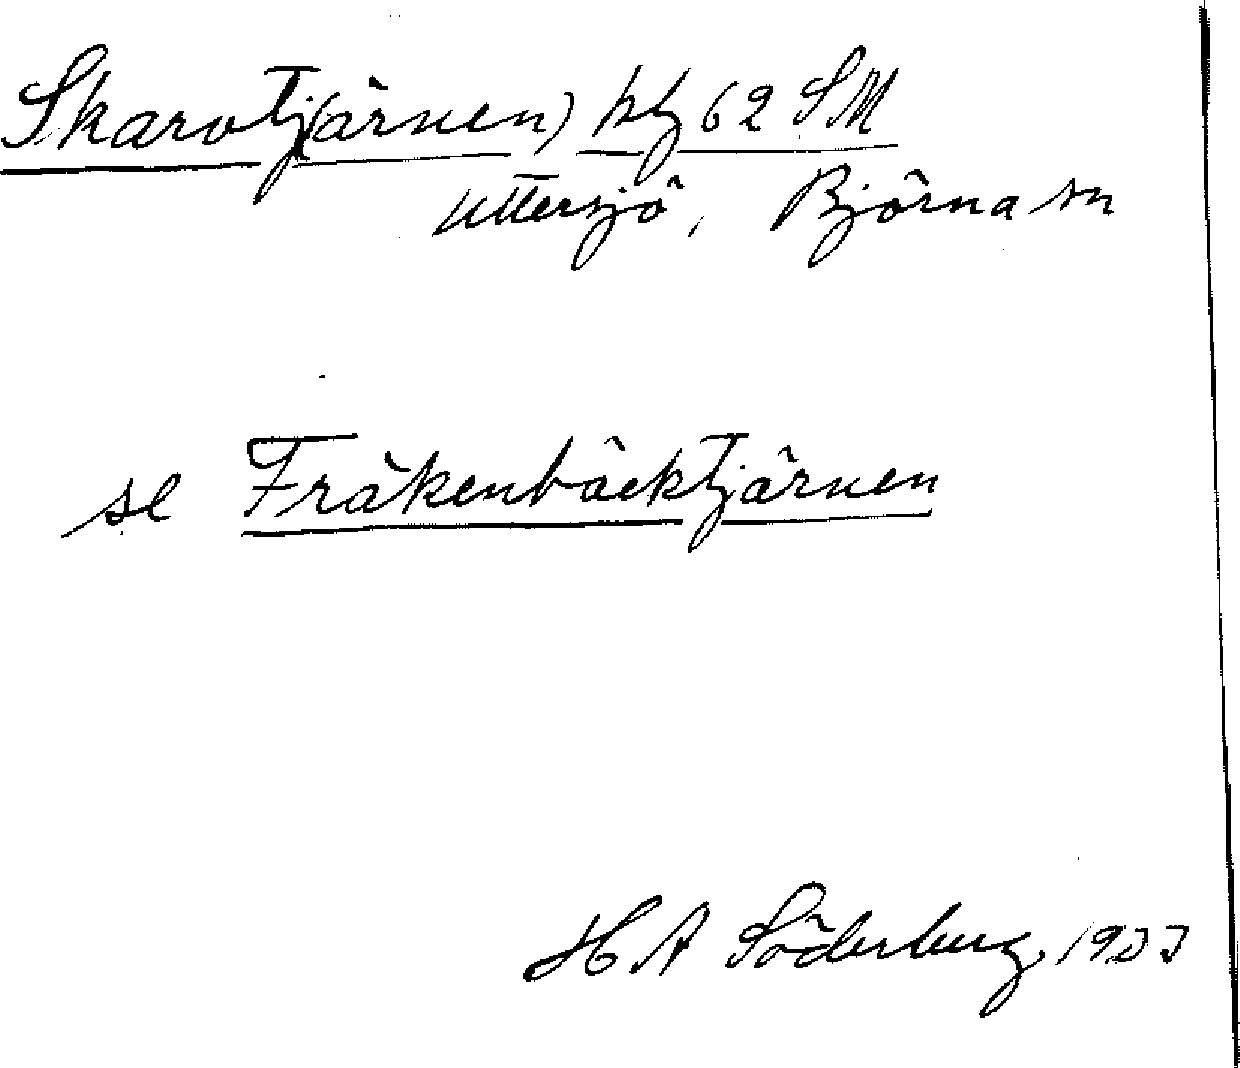 Skarvtj(ärnen) hfg 62 SM
Uttersjö, Björna sn
se Fräkenbäcktjärnen
H A Söderberg, 1933